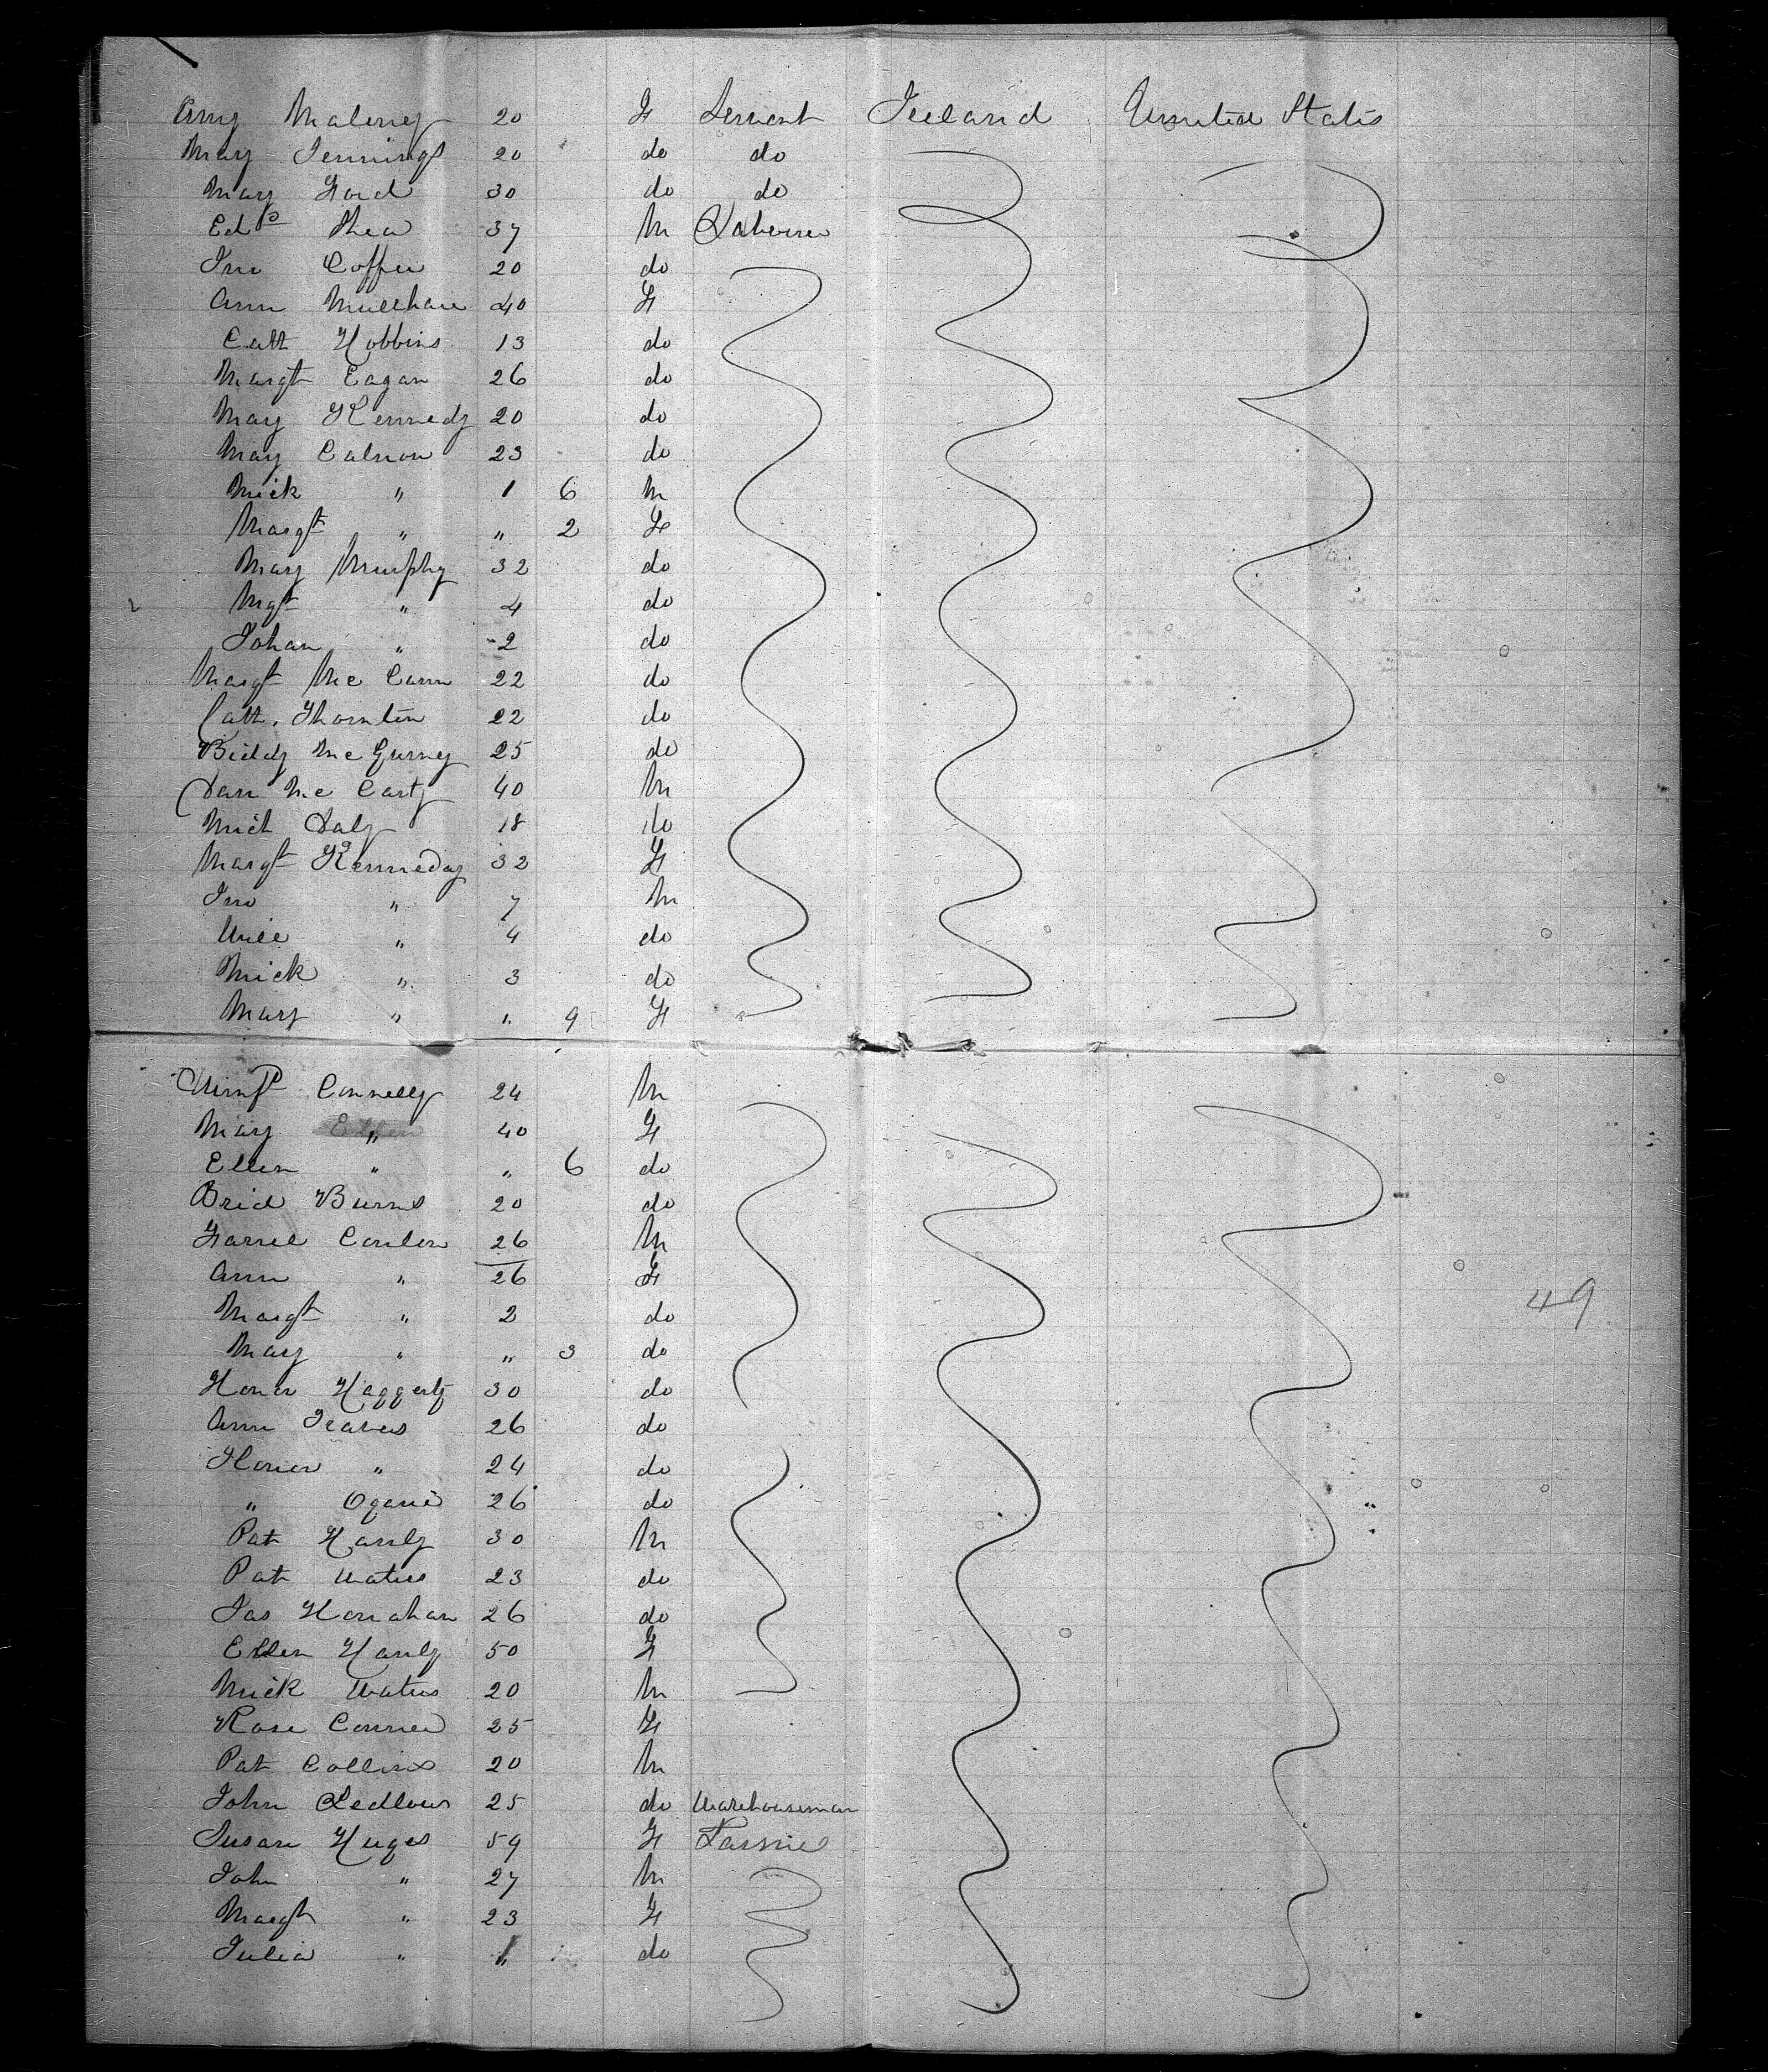 Amy Maloney 20 F Servant Ireland United States
Mary Jennings 20 do do
Mary Ford 30 do do
Edd Shea 37 M Laborer
Jno Coffee 20 do
Ann Mullhare 40 F
Cath Hobbins 13 do
Margt Eagan 26 do
Mary Kennedy 20 do
Mary Calnon 23 do
Mick " 1 6 M
Margt " " 2 F
Mary Murphy 32 do
Mgt " 4 do
Johan " 2 do
Margt Mc Cann 22 do
Cath. Thornton 22 do
Biddy Mc Gurney 25 do
Dan Mc Carty 40 M
Mich Daly 18 do
Margt Kenneday 32 F
Jno " 7 M
Will " 4 do
Mick " 3 do
Mary " " 9 F
Connelly 24 M
Mary " 40 F
Ellen " " 6 do
Brid Burns 20 do
Farrel Conlon 26 M
Ann " 26 F
Margt " 2 do
Mary " " 3 do
Honor Haggerty 30 do
Ann 26 do
Honor " 24 do
" Ogarie 26 do
Pat Hanly 30 M
Pat Waters 23 do
Jas Honahan 26 do
Ellen Hanly 50 F
Mick Waters 20 M
Rose Conner 25 F
Pat Collins 20 M
John Ledlow 25 do Warehouseman
Susan Huges 59 F
John " 27 M
Margt " 23 F
Julia " do
49